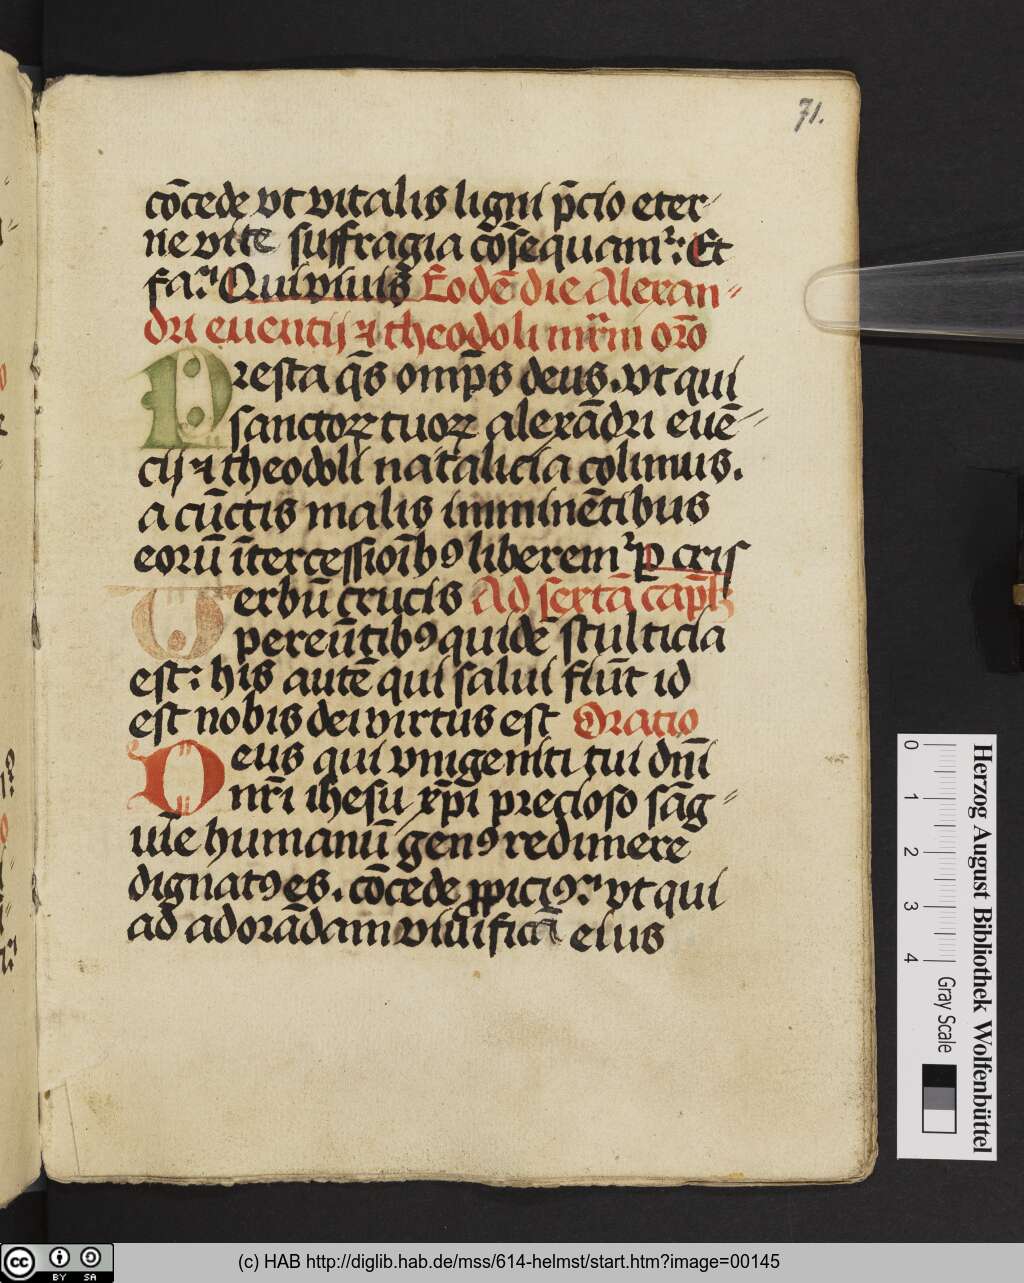 71.
cōcede vt vitalis ligni p̄cio eter-
ne vite suffragia cōsequamᷣ: Et
fa.ᷣ Qui viuis Eodē die Alexan-
dri euentij ⁊ theodoli mr̄m orō
Presta q̄s omp̄s deus. vt qui
sanctoꝝ tuoꝝ alexādri euē-
cij ⁊ theodoli natalicia colimus.
a cūctis malis imminētibus
eorū ītercessioībꝰ liberemᷣ P cris
Verbū crucis Ad sextā cap̄lꝫ
pereūtibꝰ quidē stulticia
est: his autē qui salui fiūt id
est nobis dei virtus est Oratio
Deus qui vnigeniti tui dn̄i
nr̄i ihesu xp̄i precioso sāg-
uīe humanū genꝰ redimere
dignatꝰ es. cōcede ꝓpiciꝰ.ᷣ vt qui
ad adorādam viuificā eius
Herzog August Bibliothek Wolfenbüttel
0 1 2 3 4
Gray Scale
cc BY SA
(c) HAB http://diglib.hab.de/mss/614-helmst/start.htm?image=00145